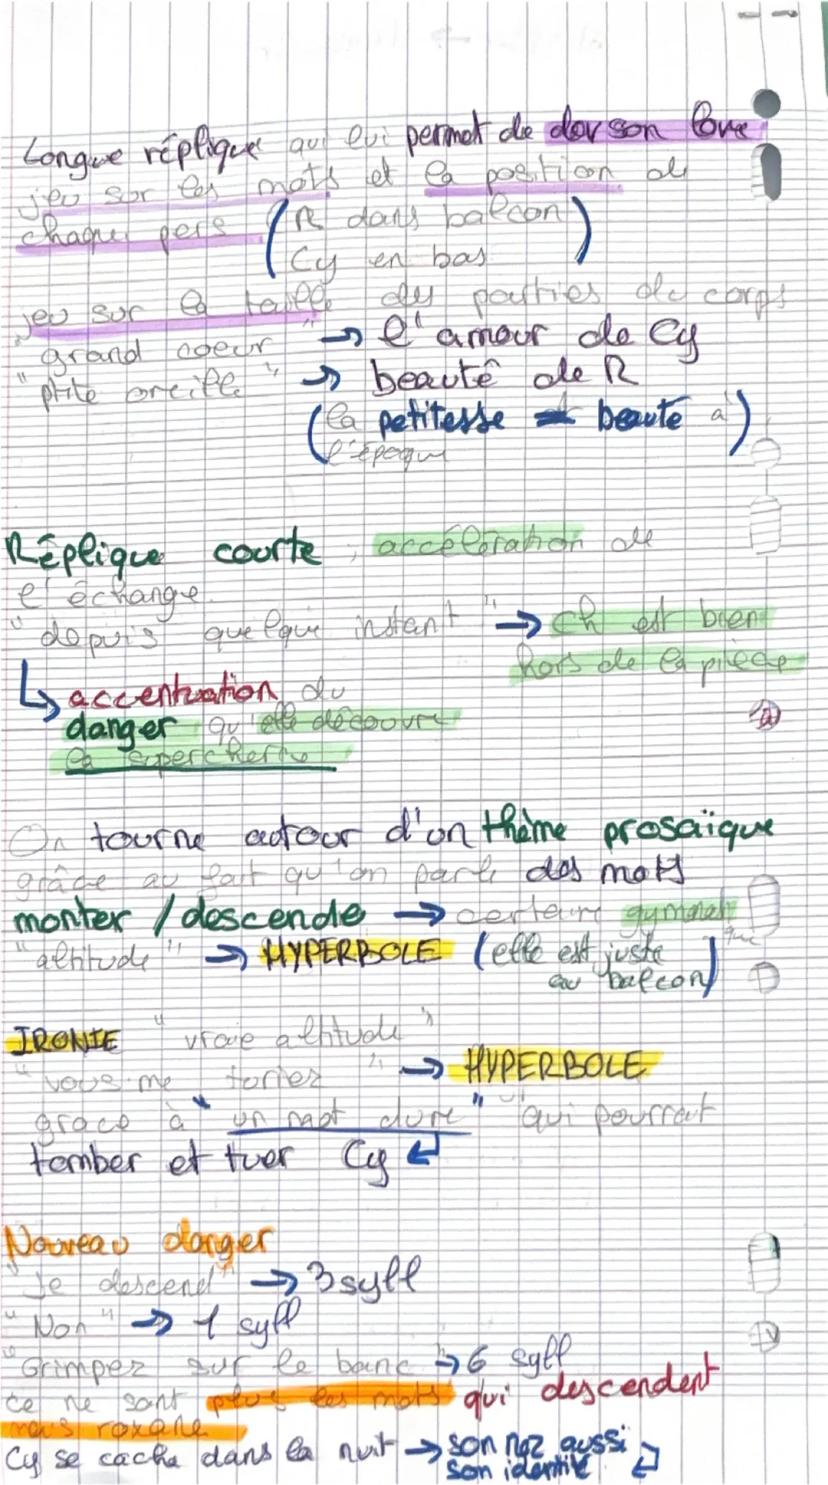 Longue réplique qui lui permet de dévson love
jeu sur les mots et la position de
chaque pers (R dans balcon
Cy en bas)
jeu sur la taille des parties du corps
"grand coeur" → l'amour de Cy
"ptite oreille" → beauté de R
(la petitesse = beauté à
l'époque)
Réplique courte, accélération de
l'échange.
"depuis quelque instant" → Ch est bien
hors de la pièce
↳ accentuation du
danger qu'elle découvre
la supercherie
On tourne autour d'un thème prosaïque
grâce au fait qu'on parle des mots
monter / descende → certaine gymnastique
"altitude" → HYPERBOLE (elle est juste
au balcon)
IRONIE "vraie altitude"
"vous me tueriez" → HYPERBOLE
grace à "un mot dure" "qui pourrait
tomber et tuer Cy
Nouveau danger
"Je descend" → 3 syll
"Non" → 1 syll
"Grimpez sur le banc" → 6 syll
ce ne sont plus les mots qui descendent
mais roxane
Cy se cache dans la nuit → son nez aussi
son identité